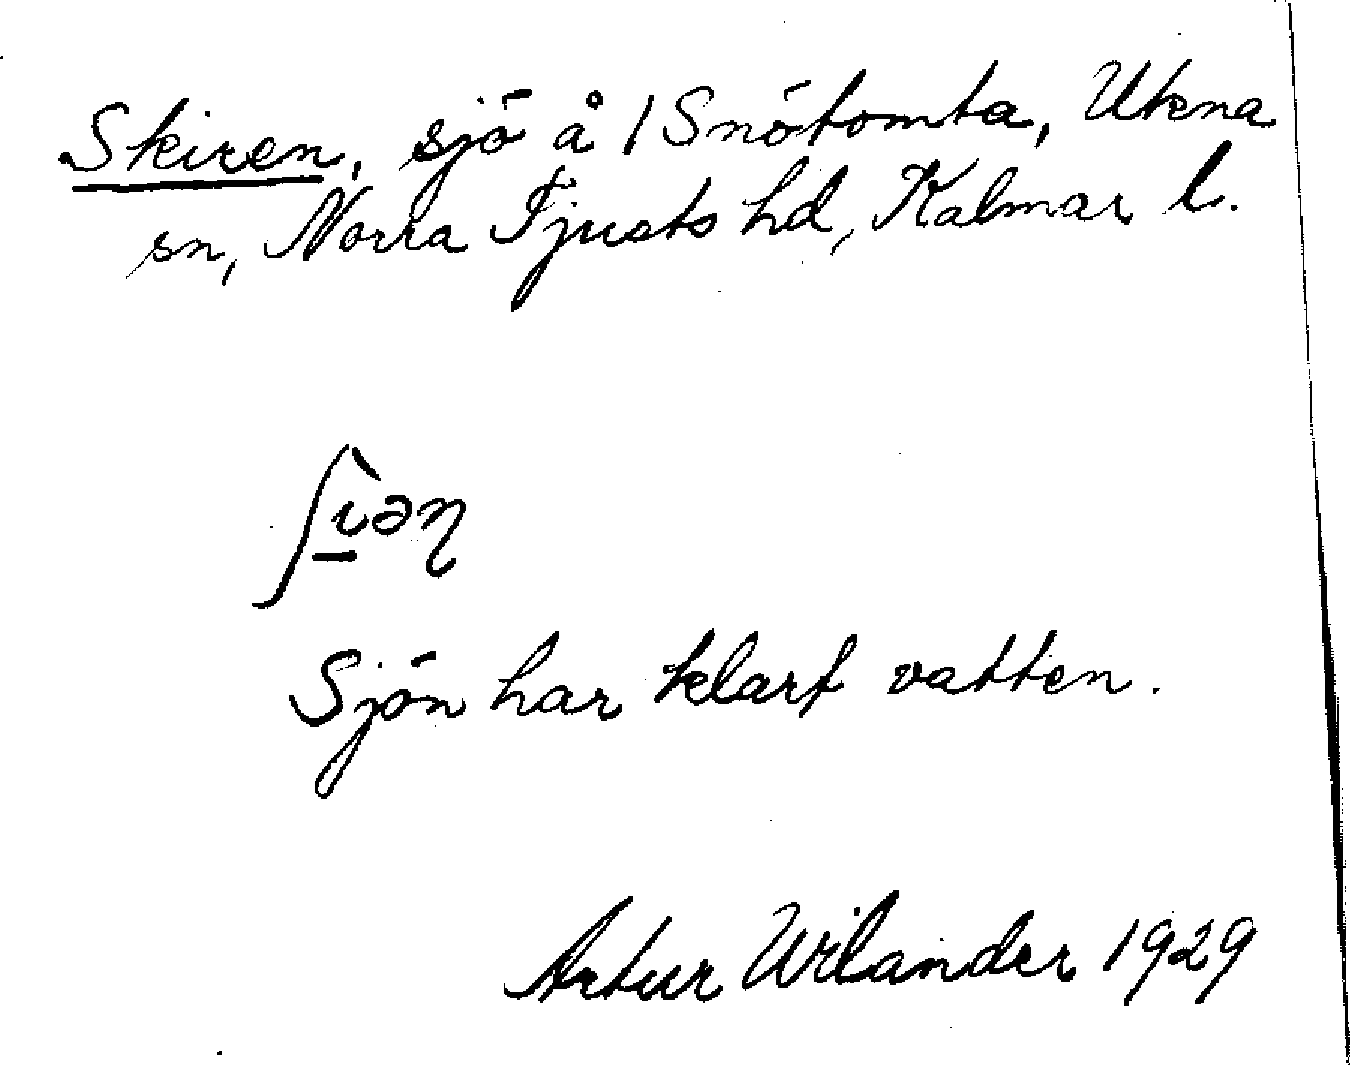 Skiren, sjö å 1 Snötomta, Ukna
sn, Norra Tjusts hd, Kalmar l.
ʃı̱̀ən
Sjön har klart vatten.
Artur Wilander 1929